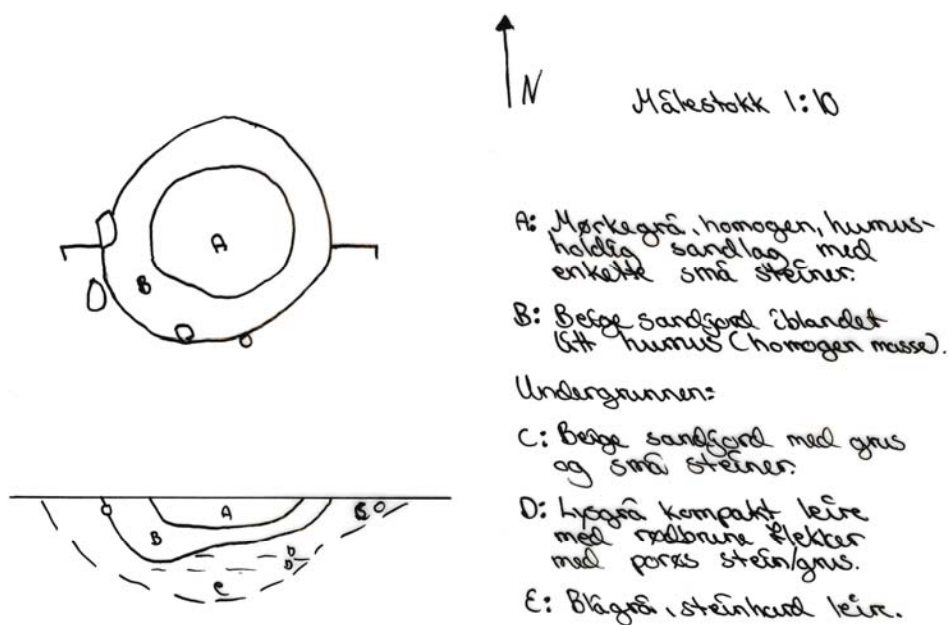 N
Målestokk 1:10
A
B
A: Mørkegrå, homogen, humus-
holdig sandlag med
enkelte små steiner.
B: Beige sandjord iblandet
litt humus (homogen masse).
Undergrunnen:
C: Beige sandjord med grus
og små steiner.
D: Lysgrå kompakt leire
med rødbrune flekker
med porøs stein/grus.
E: Blågrå, steinhard leire.
A
B
C
D
D
E